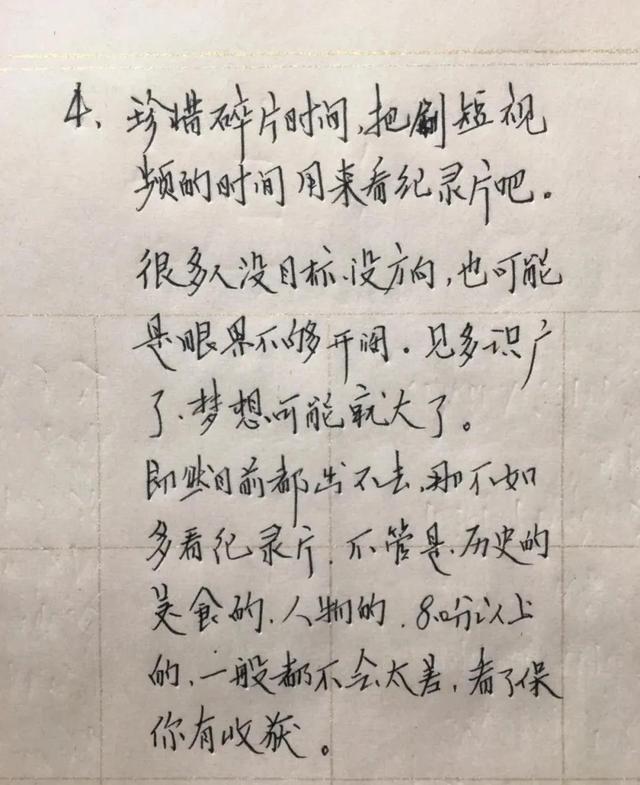 4、珍惜碎片时间,把刷短视
频的时间用来看纪录片吧。
很多人没目标、没方向,也可能
是眼界不够开阔。见多识广
了、梦想可能就大了。
即然目前都出不去,那不如
多看纪录片,不管是、历史的
美食的、人物的、8.0分以上
的、一般都不会太差,看了保
你有收获。